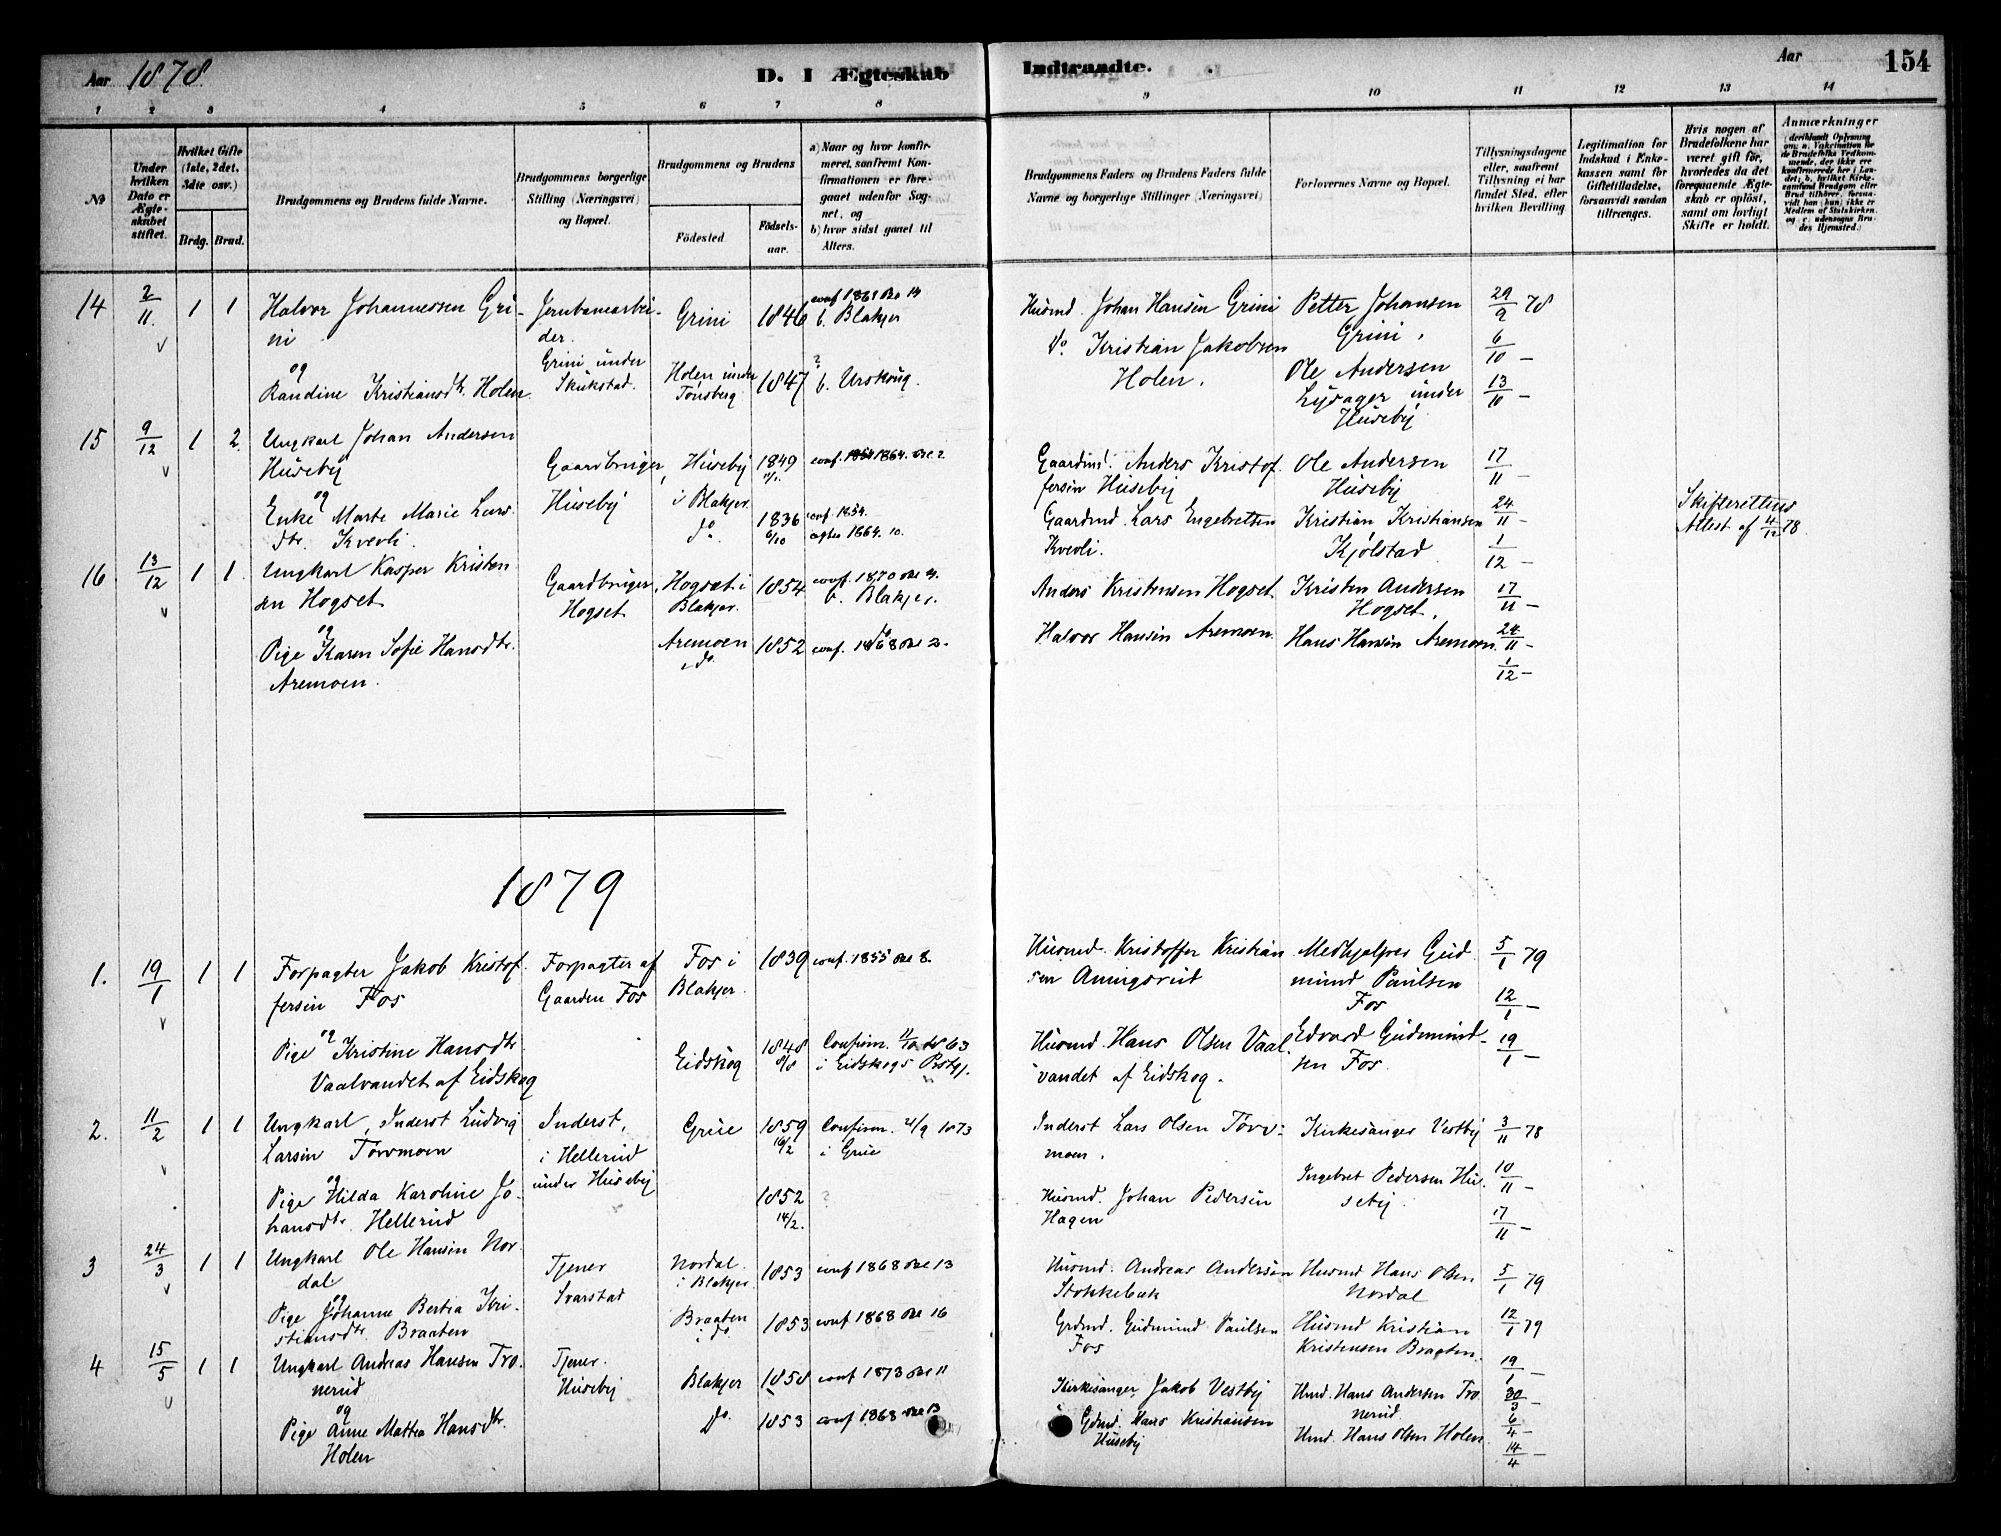 Aar 1878.
D. I Ægteskab Indtraadte.
Aar
154
1 2 3 4 5 6 7 8 9 10 11 12 13 14
№
Under hvilken Dato er Ægteskabet stiftet.
Hvilket Gifte (1ste, 2det, 3dte osv.)
Brdg. Brud.
Brudgommens og Brudens fulde Navne.
Brudgommens borgerlige Stilling (Næringsvei) og Bopæl.
Brudgommens og Brudens
Födested.
Födsels-aar.
a) Naar og hvor konfirmeret, saafremt Konfirmationen er foregaaet udenfor Sognet, og
b) hvor sidst gaaet til Alters.
Brudgommens Faders og Brudens Faders fulde Navne og borgerlige Stillinger (Næringsvei)
Forlovernes Navne og Bopæl.
Tillysningsdagene eller, saafremt Tillysning ei har fundet Sted, efter hvilken Bevilling
Legitimation for Indskud i Enkekassen samt for Giftetilladelse, forsaavidt saadan tiltrænges.
Hvis nogen af Brudefolkene har været gift før, hvorledes da det foregaaende Ægteskab er opløst, samt om lovligt Skifte er holdt.
Anmærkninger
14 2/11. 1 1
Halvor Johannessen Gri-
ni
og
Randine Kristiansdtr. Holen
Jernbanearbei-
der.
Grini under
Skukstad.
Grini 1846 conf 1861 No 14
b. Blakjer
Holen under
Tønsberg 1847 ?
b. Urskoug.
Husmd. Johan Hansen Grini
Do. Kristian Jakobsen
Holen.
Petter Johansen
Grini,
Ole Andersen
Lysager under
Huseby
29/9 78
6/10 —
13/10 —
15 9/12 1 2.
Ungkarl Johan Andersen
Huseby
og
Enke Marte Marie Lars
dtr. Kveoli.
Gaardbruger,
Huseby
Huseby
i Blakjer.
do.
1849
1836
6/10
conf. 1864. No 2.
conf. 1854.
ægtev 1864. 10.
Gaardmd. Anders Kristof.
fersen Huseby
Gaardmd. Lars Engebretsen
Kveoli.
Ole Andersen
Huseby
Kristian Kristiansen
Kjølstad
17/11 —
24/11 —
1/12 —
Skifterettens
Attest af 4/12 78.
16 13/12 1 1.
Ungkarl Kasper Kristen
sen Hogset
og
Pige Karen Sofie Hansdtr.
Aremoen.
Gaardbruger,
Hogset
Hogset i
Blakjer.
Aremoen
i do.
1854
1852
conf. 1870 No 4.
b. Blakjer.
do
conf. 1868 No 2.
Anders Kristensen Hogset
Halvor Hansen Aremoen.
Kristen Andersen
Hogset,
Hans Hansen Aremoen.
17/11 —
24/11 —
1/12 —
1879
1. 19/1 1 1
Forpagter Jakob Kristof.
fersen Fos
og
Pige Kristine Hansdtr.
Vaalvandet af Eidskog
Forpagter af
Gaarden Fos
Fos i
Blakjer.
Eidskog
1839
1848
8/8
conf. 1855 No 8.
Confirm. 11/10 63
i Eidskogs Prstgj.
Husmd. Kristoffer Kristian
sen Aningsrud
Husmd. Hans Olsen Vaal.
vandet af Eidskog.
Medhjelper Gud
mund Paulsen
Fos
Edvard Gudmund-
sen Fos.
5/1 79
12/1 —
19/1 —
2. 11/2 1 1
Ungkarl, Inderst Ludvig
Larsen Torvmoen
og
Pige Hilda Karoline Jo-
hansdtr. Hellerud
Inderst,
i Hellerud
under Huseby
Grue
1859
16/2
1852
14/2.
Confirm. 21/9 1873
i Grue
?
Inderst Lars Olsen Torv-
moen.
Husmd. Johan Pedersen
Hagen
Kirkesanger Vestby
Ingebret Pedersen Hu-
seby.
3/11 78
10/11 —
17/11 —
3 24/3 1 1
Ungkarl Ole Hansen Nor.
dal
og
Pige Johanne Bertea Kri-
stiansdtr. Braaten
Tjener
Svarstad
Nordal
i Blakjer
Braaten
i do
1853
1853
conf 1868 No 13
conf 1868 No 16
Husmd. Andreas Andersen
Stokkebæk
Grdmd. Gudmund Paulsen
Fos
Husmd Hans Olsen
Nordal
Husmd Kristian
Kristensen Braaten.
5/1 79
12/1 79
19/1 —
4 15/5 1 1
Ungkarl Andreas Hansen Tro
nerud
og
Pige Anne Mathea Hansdtr.
Holen
Tjener.
Huseby
Blakjer
Do.
1858
1853
conf 1873 No 11
conf. 1868 No 13
Kirkesanger Jakob Vestby
Grdmd. Hans Kristiansen
Huseby
Hmd. Hans Andersen Tro
nerud
Hmd. Hans Olsen Holen
30/3 —
6/4 —
14/4